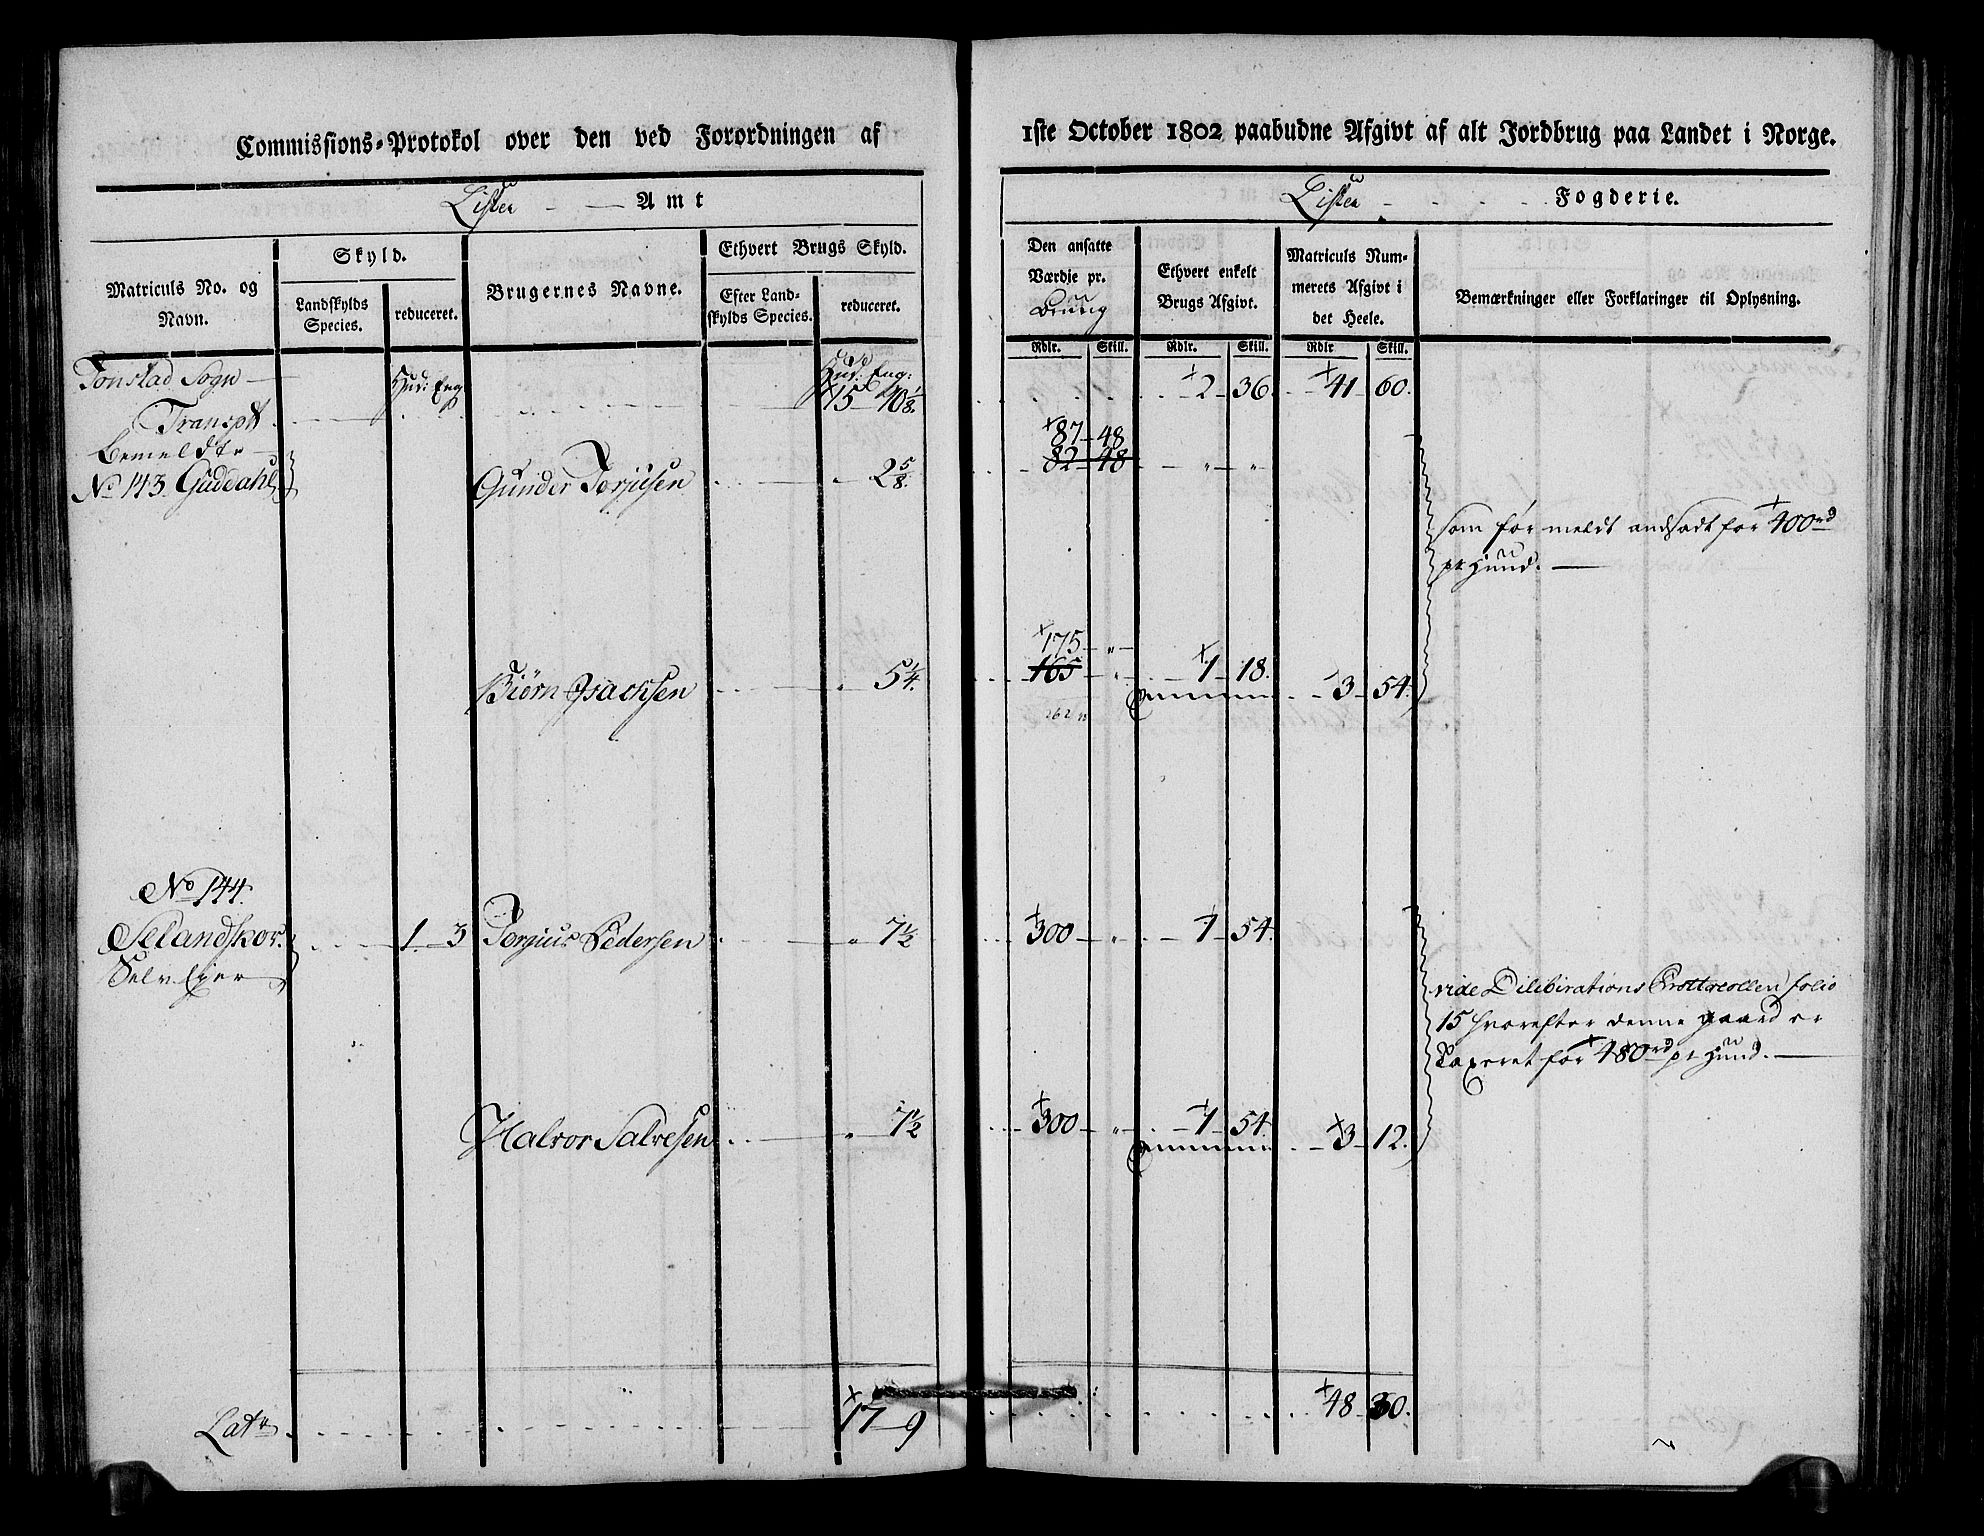 Commissions-Protokol over den ved Forordningen af
Lister Amt
Matriculs No. og Navn.
Skyld.
Landskylds Species.
reduceret.
Brugernes Navne.
Ethvert Brugs Skyld.
Efter Landskylds Species.
reduceret.
Tonstad Sogn
Hud: Eng:
Hud: Eng:
Transpt
15 10 1/8.
Bemeldte
No 143. Guddahl
Gunder Torjusen
2 5/8.
Biørn Isachsen
5 1/4.
No 144.
Selandskor.
1 3
Torgius Pedersen
7 1/2
Selv Ejer
Halvor Salvesen
7 1/2
Lat
17 9
1ste October 1802 paabudne Afgivt af alt Jordbrug paa Landet i Norge.
Lister Fogderie.
Den ansatte Værdie pr. Bruug
Ethvert enkelt Brugs Afgivt.
Matriculs Nummerets Afgivt i det Heele.
Bemærkninger eller Forklaringer til Oplysning.
Rdlr. Skill. Rdlr. Skill. Rdlr Skill.
2 36. 41 60.
87 48
82 48 " "
som før meldt andsadt for 400rd
pr Huud.
175 "
165 " 1 18.
3 54.
262
300 " 1 54.
vide Dilibirations Prottocollen folio
15 hvorefter denne gaard er
Taxeret for 480rd pr Huud.
300 " 1 54. 3 12.
48 30.